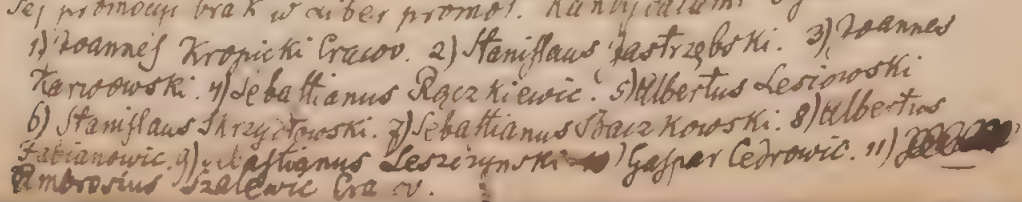 tej promocji brak w Liber promot. Kandydatami
1) Joannes Kropicki Cracov. 2) Stanislaus Jastrzębski. 3) Joannes
Karwowski. 4) Sebastianus Rączkiewic. 5) Albertus Lesiowski
6) Stanislaus Skrzydłowski. 7) Sebastianus Bączkowski. 8) Albertus
Fabianowic. 9) Sebastianus Leszczynski 10) Gaspar Cedrowic. 11)
Ambrosius Szalewic Cracov.